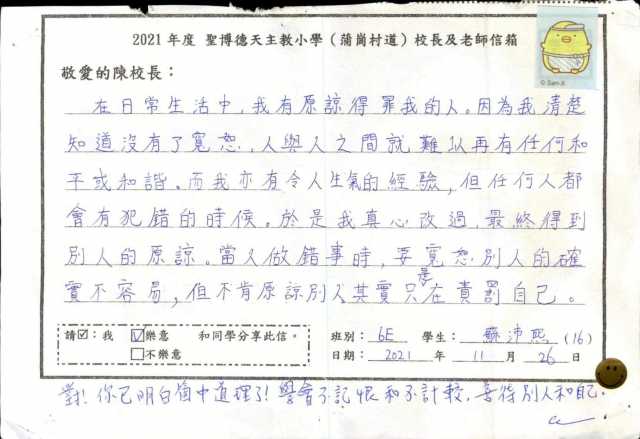 2021 年度 聖博德天主教小學（蒲崗村道）校長及老師信箱
敬愛的陳校長：
在日常生活中，我有原諒得罪我的人。因為我清楚
知道沒有了寬恕，人與人之間就難以再有任何和
平或和諧。而我亦有令人生氣的經驗，但任何人都
會有犯錯的時候。於是我真心改過，最終得到
別人的原諒。當人做錯事時，要寬恕別人的確
實不容易，但不肯原諒別人其實只是在責罰自己。
請☑：我 ☑樂意 和同學分享此信。
□不樂意
班別： 6E 學生： 蘇沛熙 (16)
日期： 2021 年 11 月 26 日
對！你已明白箇中道理了！學會不記恨和不計較，善待別人和自己。